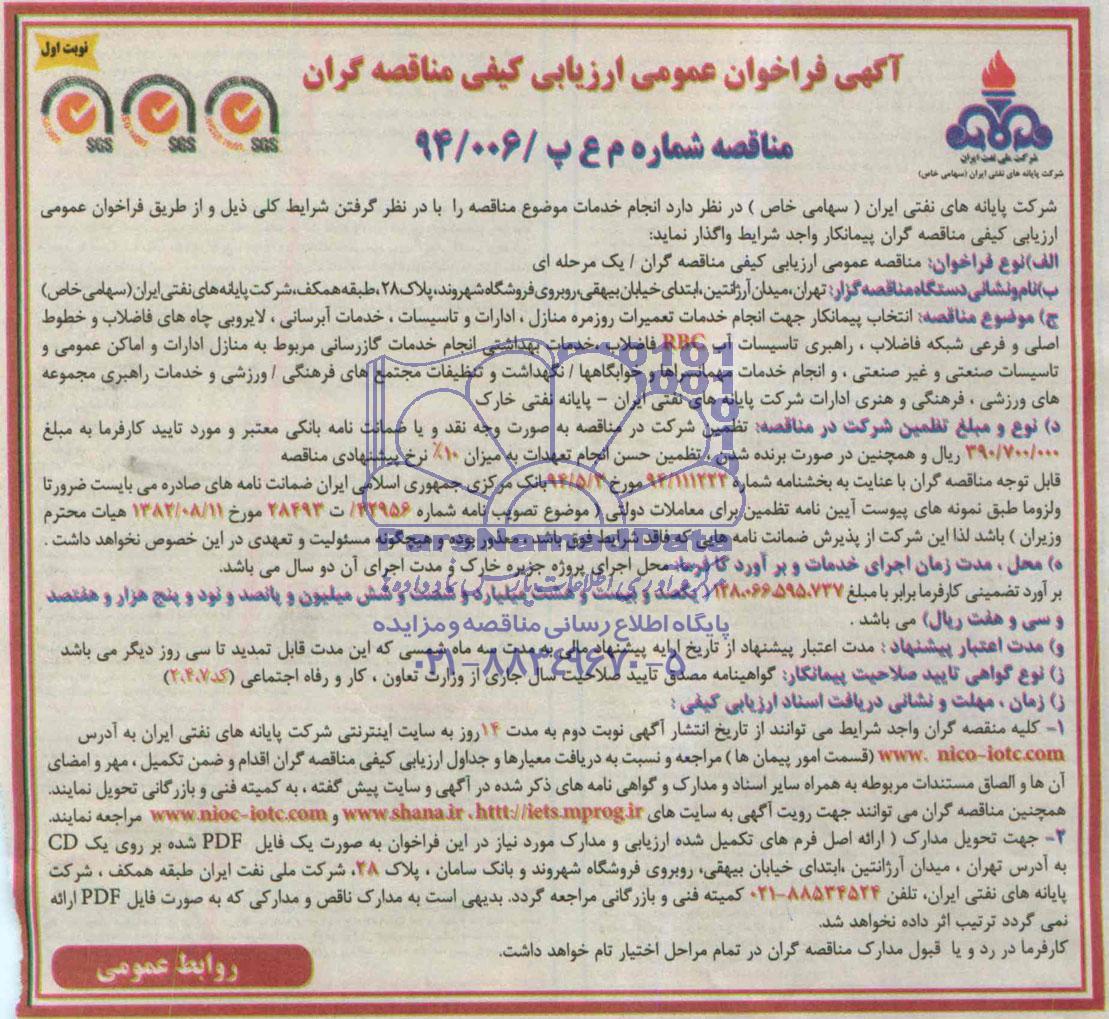 نوبت اول
آگهی فراخوان عمومی ارزیابی کیفی مناقصه گران
مناقصه شماره م ع پ /۹۴/۰۰۶
SGS SGS SGS
شرکت ملی نفت ایران
شرکت پایانه های نفتی ایران (سهامی خاص)
شرکت پایانه های نفتی ایران ( سهامی خاص ) در نظر دارد انجام خدمات موضوع مناقصه را با در نظر گرفتن شرایط کلی ذیل و از طریق فراخوان عمومی
ارزیابی کیفی مناقصه گران پیمانکار واجد شرایط واگذار نماید:
الف)نوع فراخوان: مناقصه عمومی ارزیابی کیفی مناقصه گران / یک مرحله ای
ب)نام‌و‌نشانی دستگاه مناقصه گزار: تهران،میدان آرژانتین،ابتدای خیابان بیهقی،روبروی فروشگاه شهروند،پلاک ۲۸،طبقه همکف،شرکت پایانه های نفتی ایران(سهامی خاص)
ج) موضوع مناقصه: انتخاب پیمانکار جهت انجام خدمات تعمیرات روزمره منازل ، ادارات و تاسیسات ، خدمات آبرسانی ، لایروبی چاه های فاضلاب و خطوط
اصلی و فرعی شبکه فاضلاب ، راهبری تاسیسات آب RBC فاضلاب ،خدمات بهداشتی انجام خدمات گازرسانی مربوط به منازل ادارات و اماکن عمومی و
تاسیسات صنعتی و غیر صنعتی ، و انجام خدمات مهمانسراها و خوابگاهها / نگهداشت و تنظیفات مجتمع های فرهنگی / ورزشی و خدمات راهبری مجموعه
های ورزشی ، فرهنگی و هنری ادارات شرکت پایانه های نفتی ایران – پایانه نفتی خارک
د) نوع و مبلغ تظمین شرکت در مناقصه: تظمین شرکت در مناقصه به صورت وجه نقد و یا ضمانت نامه بانکی معتبر و مورد تایید کارفرما به مبلغ
۳۹۰/۷۰۰/۰۰۰ ریال و همچنین در صورت برنده شدن ، تظمین حسن انجام تعهدات به میزان ۱۰٪ نرخ پیشنهادی مناقصه
قابل توجه مناقصه گران با عنایت به بخشنامه شماره ۹۴/۱۱۱۲۲۲ مورخ ۹۴/۵/۳ بانک مرکزی جمهوری اسلامی ایران ضمانت نامه های صادره می بایست ضرورتا
ولزوما طبق نمونه های پیوست آیین نامه تظمین برای معاملات دولتی ( موضوع تصویب نامه شماره ۴۲۹۵۶/ ت ۲۸۴۹۳ مورخ ۱۳۸۲/۰۸/۱۱ هیات محترم
وزیران ) باشد لذا این شرکت از پذیرش ضمانت نامه هایی که فاقد شرایط فوق باشد ، معذور بوده و هیچگونه مسئولیت و تعهدی در این خصوص نخواهد داشت .
ه) محل ، مدت زمان اجرای خدمات و بر آورد کارفرما: محل اجرای پروژه جزیره خارک و مدت اجرای آن دو سال می باشد.
بر آورد تضمینی کارفرما برابر با مبلغ ۱۲۸.۰۶۶.۵۹۵.۷۳۷ ( یکصد و بیست و هشت میلیارد و شصت و شش میلیون و پانصد و نود و پنج هزار و هفتصد
و سی و هفت ریال) می باشد .
و) مدت اعتبار پیشنهاد : مدت اعتبار پیشنهاد از تاریخ ارایه پیشنهاد مالی به مدت سه ماه شمسی که این مدت قابل تمدید تا سی روز دیگر می باشد
ز) نوع گواهی تایید صلاحیت پیمانکار: گواهینامه مصدق تایید صلاحیت سال جاری از وزارت تعاون ، کار و رفاه اجتماعی (کد۲،۴،۷)
ز) زمان ، مهلت و نشانی دریافت اسناد ارزیابی کیفی :
۱- کلیه منقصه گران واجد شرایط می توانند از تاریخ انتشار آگهی نوبت دوم به مدت ۱۴ روز به سایت اینترنتی شرکت پایانه های نفتی ایران به آدرس
www. nico-iotc.com (قسمت امور پیمان ها ) مراجعه و نسبت به دریافت معیارها و جداول ارزیابی کیفی مناقصه گران اقدام و ضمن تکمیل ، مهر و امضای
آن ها و الصاق مستندات مربوطه به همراه سایر اسناد و مدارک و گواهی نامه های ذکر شده در آگهی و سایت پیش گفته ، به کمیته فنی و بازرگانی تحویل نمایند.
همچنین مناقصه گران می توانند جهت رویت آگهی به سایت های www.shana.ir ، httt://iets.mprog.ir و www.nioc-iotc.com مراجعه نمایند.
۲- جهت تحویل مدارک ( ارائه اصل فرم های تکمیل شده ارزیابی و مدارک مورد نیاز در این فراخوان به صورت یک فایل PDF شده بر روی یک CD
به آدرس تهران ، میدان آرژانتین ،ابتدای خیابان بیهقی، روبروی فروشگاه شهروند و بانک سامان ، پلاک ۲۸، شرکت ملی نفت ایران طبقه همکف ، شرکت
پایانه های نفتی ایران، تلفن ۸۸۵۳۴۵۲۴-۰۲۱ کمیته فنی و بازرگانی مراجعه گردد. بدیهی است به مدارک ناقص و مدارکی که به صورت فایل PDF ارائه
نمی گردد ترتیب اثر داده نخواهد شد.
کارفرما در رد و یا قبول مدارک مناقصه گران در تمام مراحل اختیار تام خواهد داشت.
روابط عمومی
ParsNamadData
مرکز فرآوری اطلاعات پارس نماد داده ها
پایگاه اطلاع رسانی مناقصه و مزایده
۰۲۱-۸۸۳۴۹۶۷۰-۵